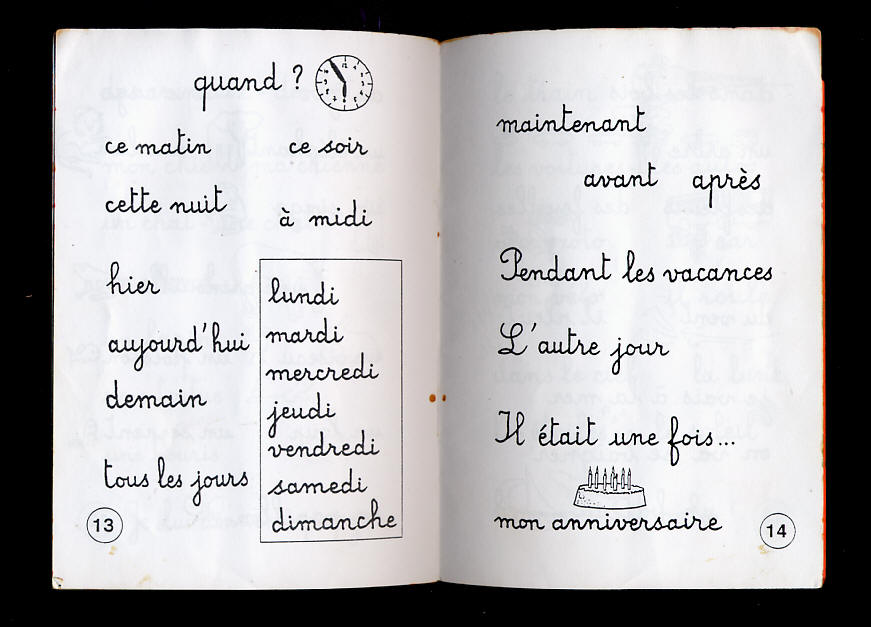 quand ?
12
ce matin
ce soir
cette nuit
à midi
hier
aujourd'hui
demain
tous les jours
lundi
mardi
mercredi
jeudi
vendredi
samedi
dimanche
13
maintenant
avant après
Pendant les vacances
L'autre jour
Il était une fois...
mon anniversaire
14